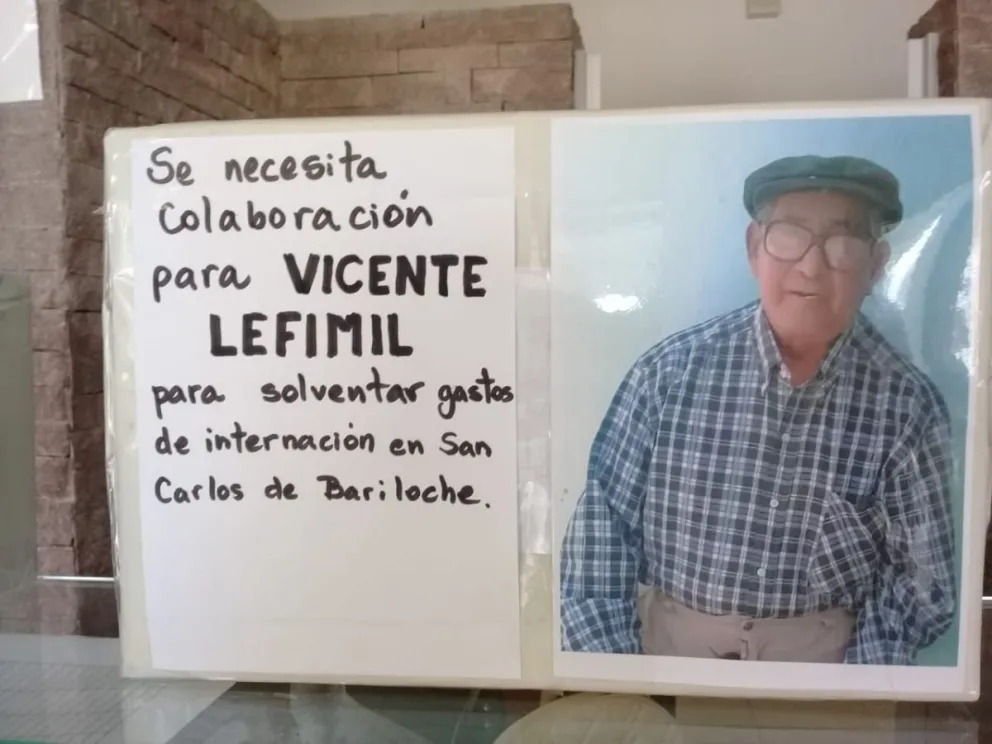 Se necesita
Colaboración
para VICENTE
LEFIMIL
para solventar gastos
de internación en San
Carlos de Bariloche.